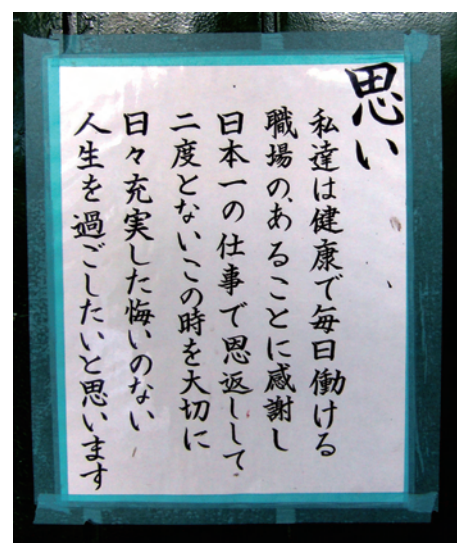 思い
私達は健康で毎日働ける
職場の、あることに感謝し
日本一の仕事で恩返しして
二度とないこの時を大切に
日々充実した悔いのない
人生を過ごしたいと思います